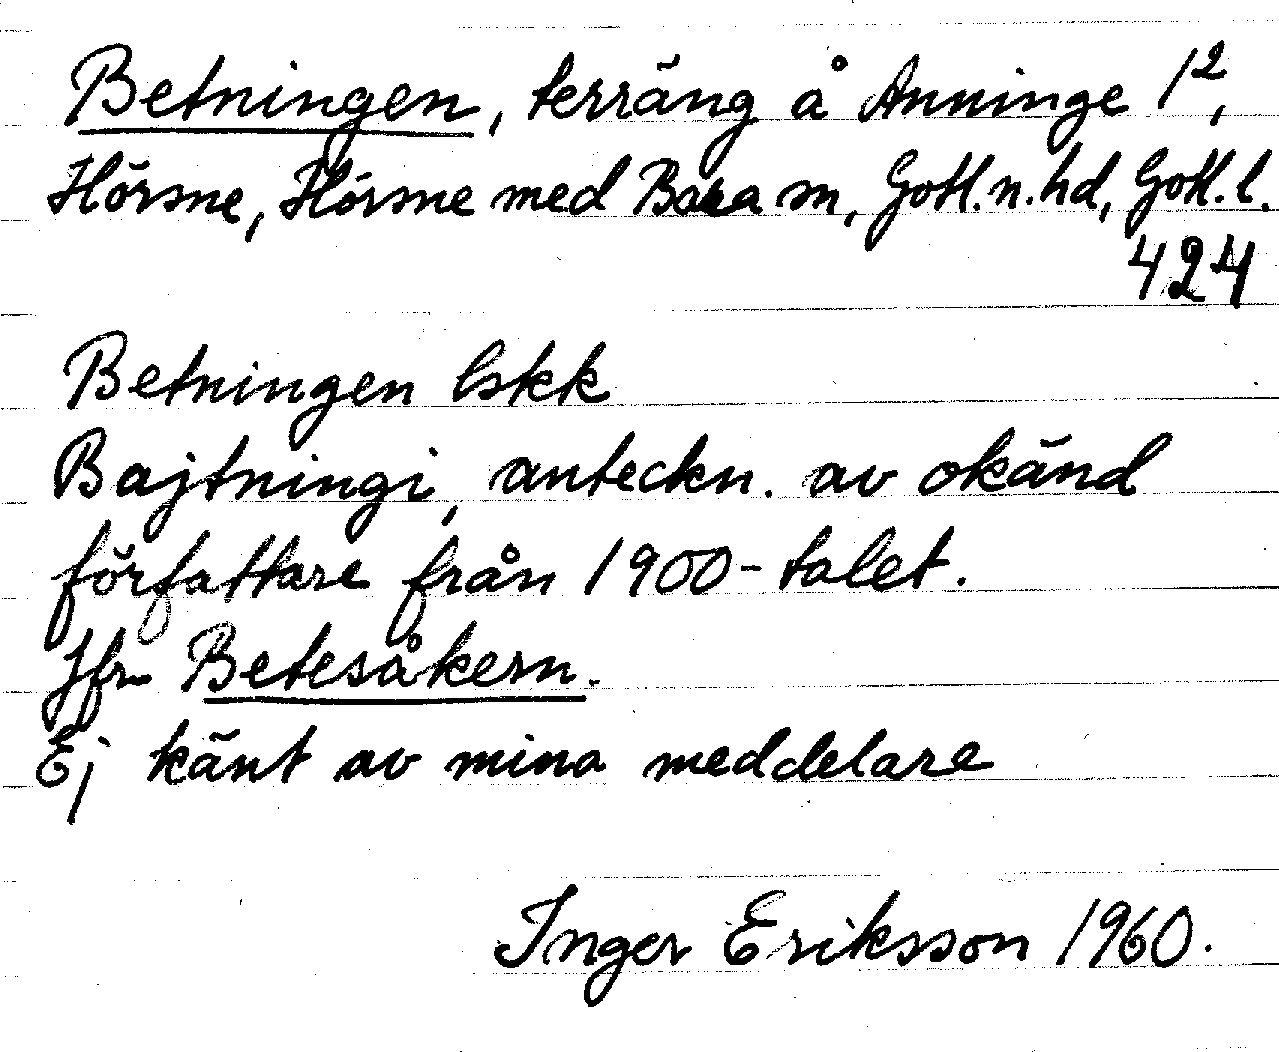 Betningen, terräng å Anninge 1²,
Hörsne, Hörsne med Bara sn, Gotl. n. hd, Gotl. l.
424
Betningen lskk
Bajtningi, anteckn. av okänd
författare från 1900-talet.
Jfr Betesåkern.
Ej känt av mina meddelare
Inger Eriksson 1960.